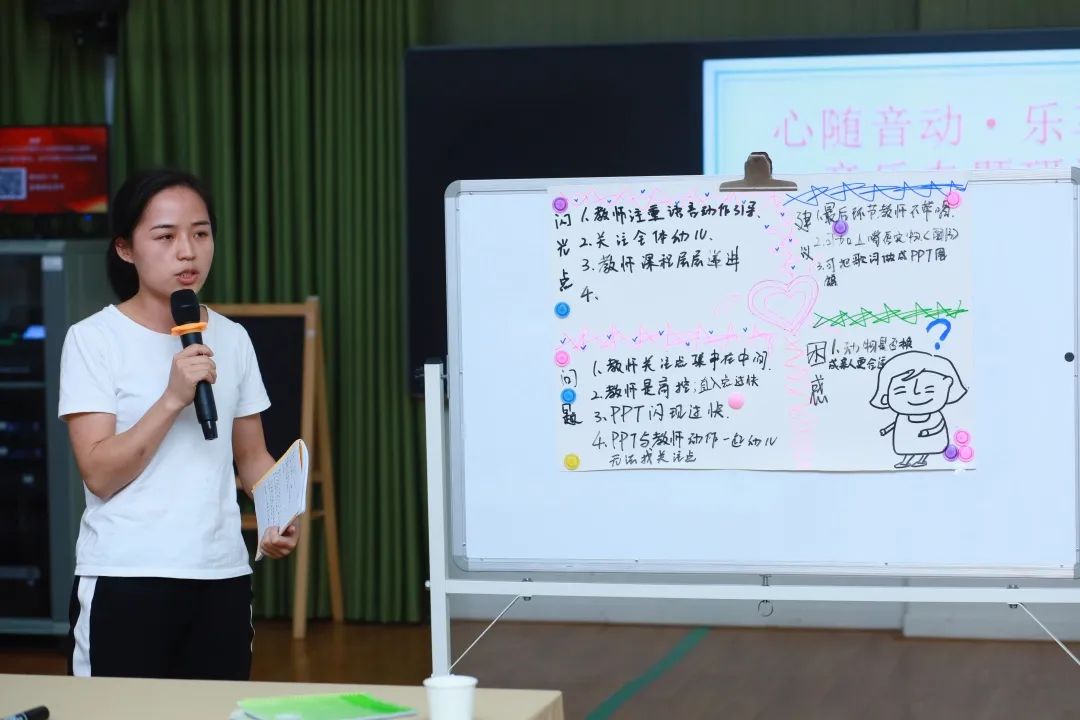 心随音动·乐
闪光点
1.教师注重语言动作引导.
2.关注全体幼儿.
3.教师课程层层递进
4.
建议
1.最后环节教师不带唱.
3.可把歌词做成PPT展
问题
1.教师关注点集中在中间
2.教师是高控;
3.PPT闪现过快.
4.PPT与教师动作一起幼儿
无法找关注点
困惑
1.动物是否换
成家人更合适
?